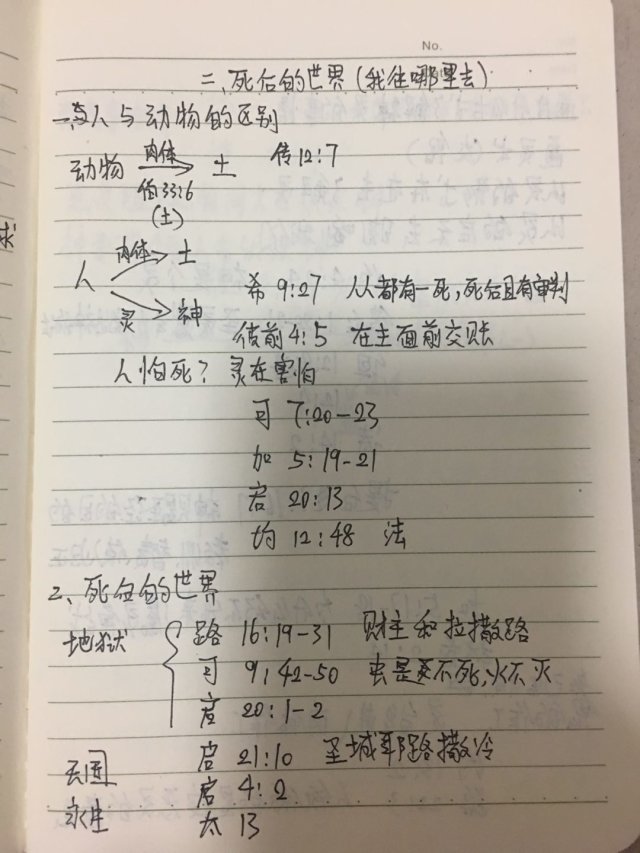 No.
二、死后的世界(我往哪里去)
一、人与动物的区别
动物 肉体 土 传12:7
伯33:6
(土)
肉体 土
人
灵 神
希 9:27 人都有一死,死后且有审判
彼前 4:5 在主面前交账
人怕死? 灵在害怕
可 7:20-23
加 5:19-21
启 20:13
约 12:48 法
2、死后的世界
地狱 路 16:19-31 财主和拉撒路
可 9:42-50 虫是不死,火不灭
启 20:1-2
启 21:10 圣城耶路撒冷
天国 启 4:2
永生 太 13
求